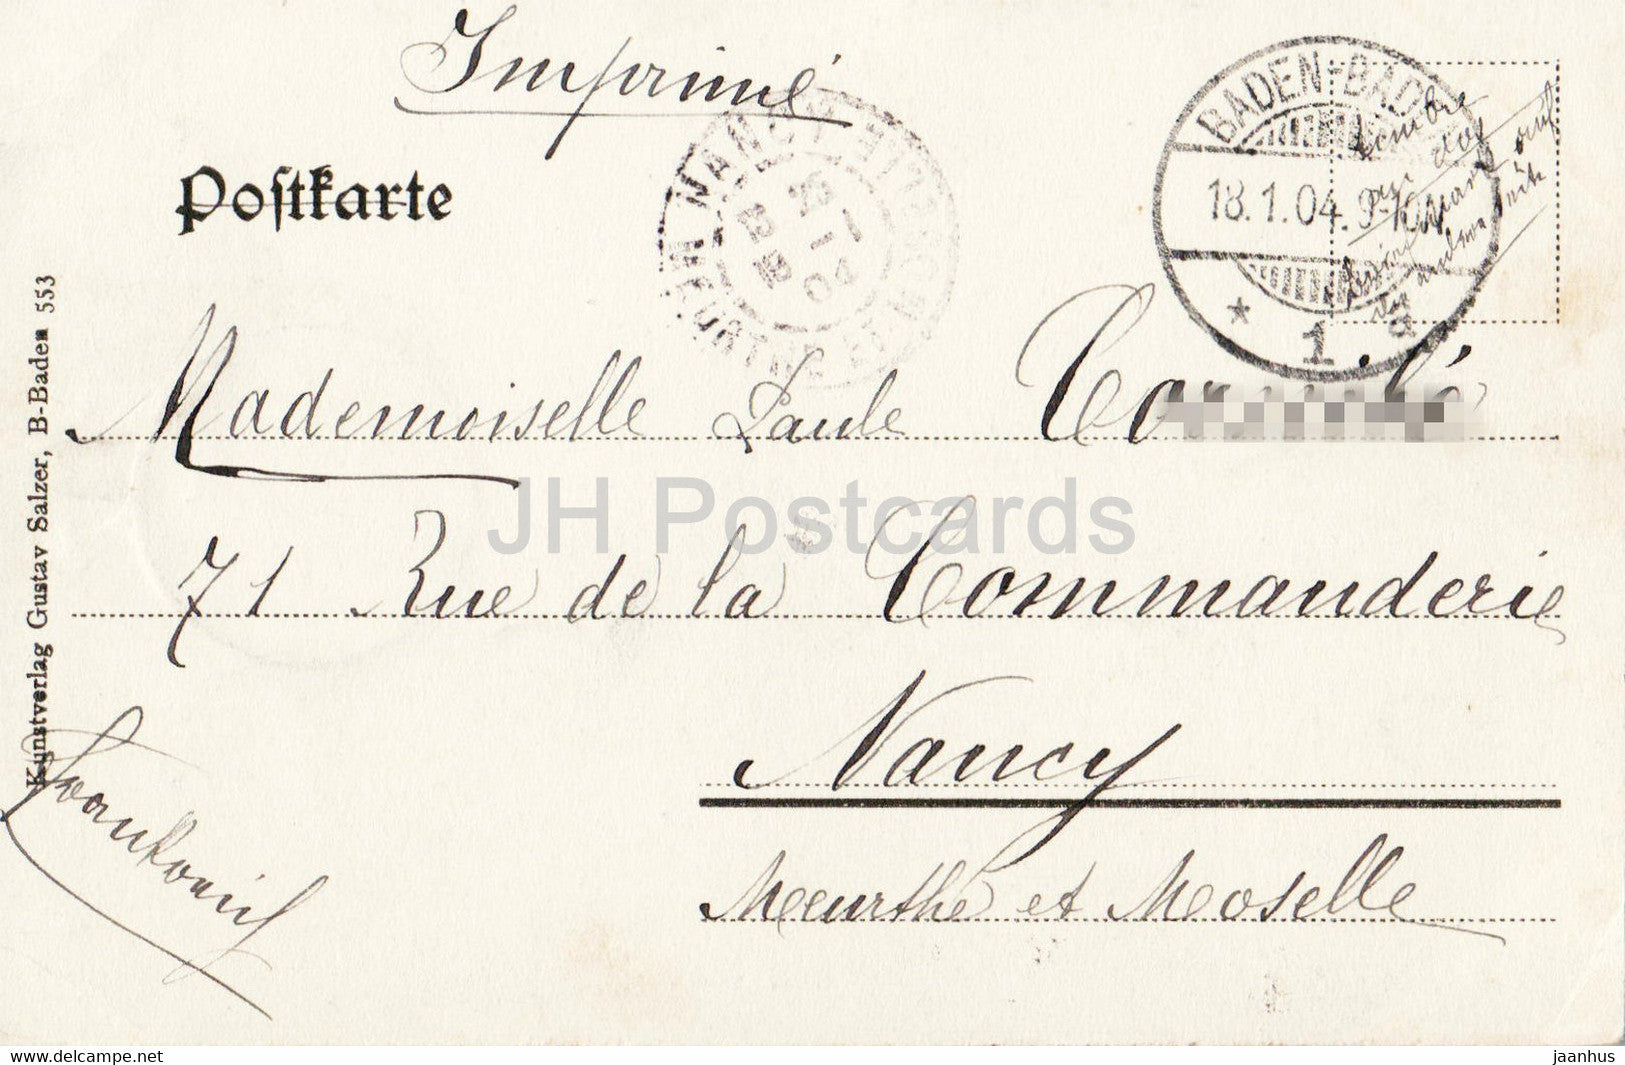 Imprimé
Postkarte
NANCY
04
BADEN-BAD
18.1.04. 9-10
* 1
timbre
auf
Mademoiselle Paule
71 Rue de la Commanderie
Nancy
Meurthe et Moselle
Frankonig
Kunstverlag Gustav Salzer, B-Baden 553
JH Postcards
www.delcampe.net
jaanhus